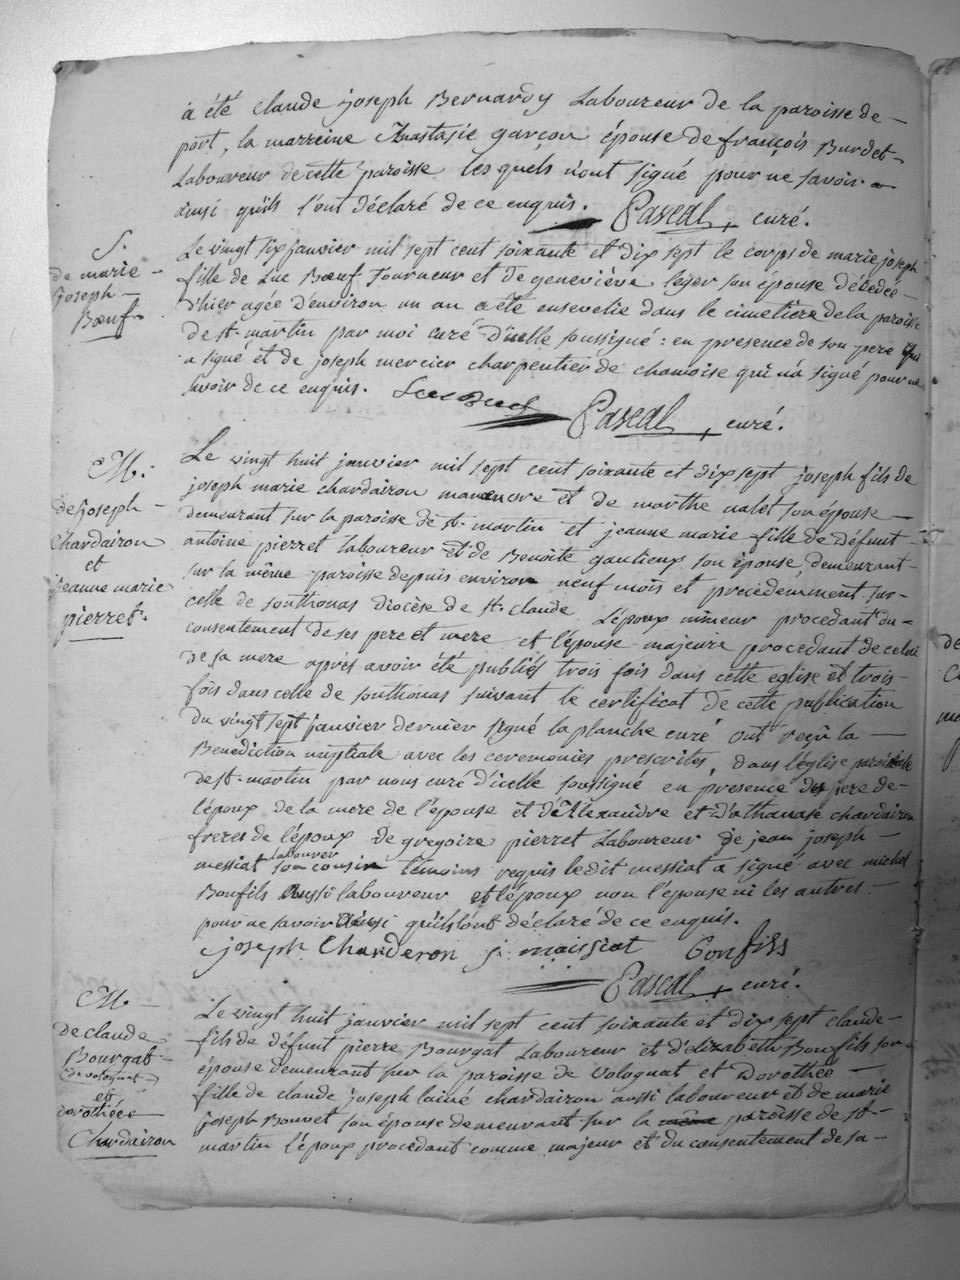 à été claude joseph Bernardy Laboureur de la paroisse de
port, la marreine Anastasie garçon épouse de françois Burdet
Laboureur de cette paroisse les quels n'ont signé pour ne savoir
ainsi qu'ils l'ont déclaré de ce enquis. Pascal, curé.
S.
de marie
joseph
Bœuf
Le vingt six janvier mil sept cent soixante et dix sept le corps de marie joseph
fille de Luc Bœuf Tourneur et de geneviève leger son épouse décédée
d'hier agée d'environ un an a été ensevelie dans le cimetière de la paroisse
de st. martin par moi curé d'icelle soussigné : en presence de son pere qui
a signé et de joseph mercier charpentier de chamoise qui n'a signé pour ne
savoir de ce enquis. Luc Buef Pascal, curé.
M.
de joseph
Chardairon
et
jeanne marie
pierret.
Le vingt huit janvier mil sept cent soixante et dix sept joseph fils de
joseph marie chardairon manœuvre et de marthe nalet son épouse
demeurant sur la paroisse de st. martin et jeanne marie fille de Défunt
antoine pierret laboureur et de Benoite gautieux son épouse, demeurant
sur la même paroisse depuis environ neuf mois et precédemment sur
celle de sonthonas diocèse de st. claude L'époux mineur procedant du
consentement de ses pere et mere et l'épouse majeure procedant de celui
de sa mere après avoir été publiés trois fois dans cette eglise et trois
fois dans celle de sonthonas suivant le certificat de cette publication
du vingt sept janvier dernier signé la planche curé ont reçu la
Benediction nuptiale avec les ceremonies prescrites, dans l'église paroissiale
de st. martin par nous curé d'icelle soussigné en presence des pere de
l'époux de la mere de l'épouse et d'Alexandre et d'athanase chardairon
freres de l'époux de gregoire pierret Laboureur de jean joseph
messiat laboureur son cousin temoins requis ledit messiat a signé avec michel
Bonfils aussi laboureur et l'époux non l'épouse ni les autres
pour ne savoir ainsi qu'ils l'ont déclaré de ce enquis.
joseph Charderon j. maissiat Bonfils
Pascal, curé.
M.
de claude
Bourgat
de volognat
et
dorothée
Chardairon
Le vingt huit janvier mil sept cent soixante et dix sept claude
fils de défunt pierre Bourgat Laboureur et d'elizabeth Bonfils son
épouse demeurant sur la paroisse de Volognat et Dorothée
fille de claude joseph lainé chardairon aussi laboureur et de marie
joseph Bouvet son épouse demeurant sur la même paroisse de st.
martin l'époux procedant comme majeur et du consentement de sa